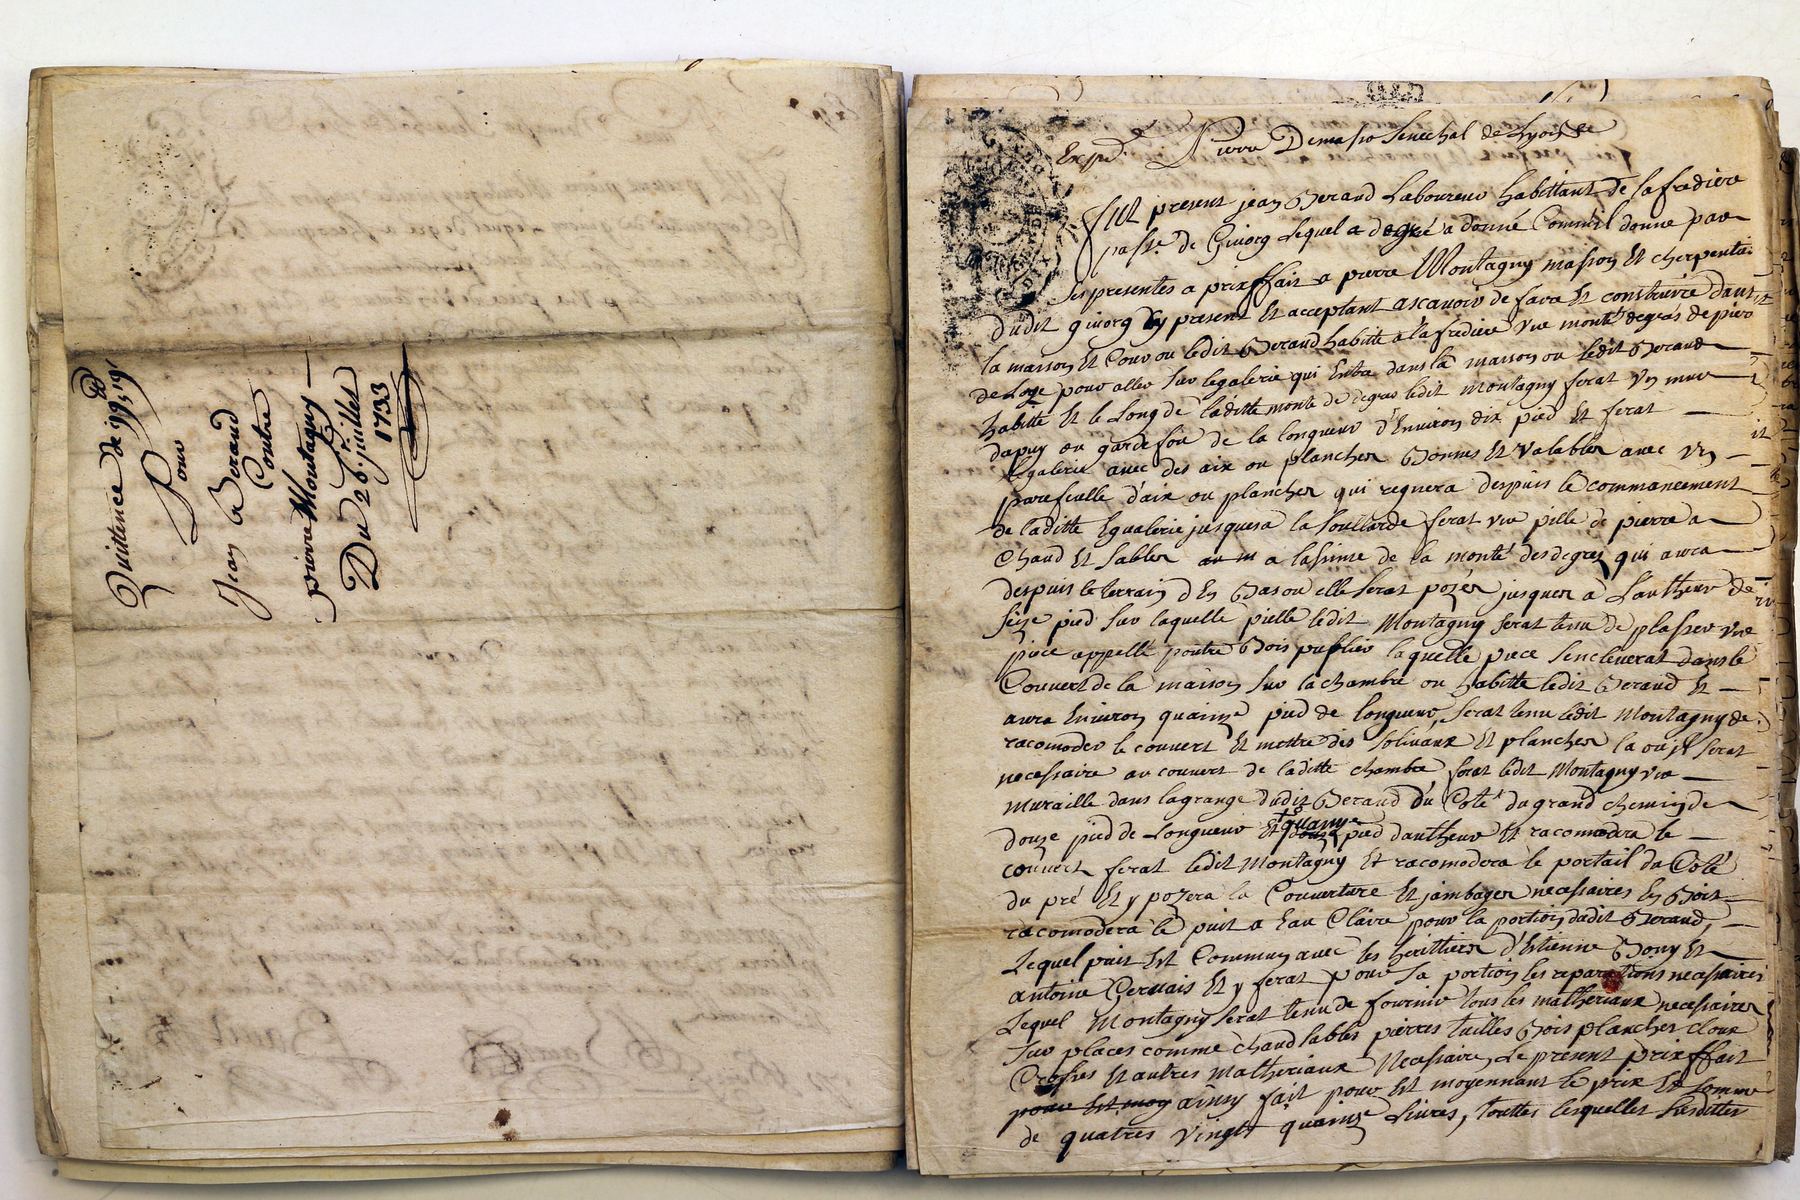 Quittence de 95 l 19 s
Pour
Jean Berand
Contre
pierre Montagny
Du 26e juillet
1733
Exped.
Pierre Demasso Senechal de Lyon
fut present jean Berand Laboureur habittant de la fradiere
parss.e de Givorg Lequel a degré a donné Comm'il donne par
Ses presentes a prixffait a pierre Montagny masson Et cherpentie
dudit givorg Cy present Et acceptant ascavoir de faire Et construire dans
la maison Et Cour ou ledit Berand habitte a la fradiere vne monté degrés de pierre
de Loze pour aller Sur legalerie qui Entre dans la maison ou ledit Berand
habitte Et le Long de laditte monté de degras ledit Montagny ferat Vn mur
dapuy ou gardefou de la longueur d'Environ dix pied Et ferat
Egalerie avec des aix ou plancher Bonnes Et Valables avec vn
parefeulle d'aix ou plancher qui regnera despuis le commancement
de laditte Egualerie jusques a la Soullarde ferat vne pille de pierre a
Chaud Et Sables a lasime de la monté des degrez qui aura
despuis le terrain d'En Bas ou elle Serat pozée jusques a Lautheur de
Seize pied Sur laquelle pielle ledit Montagny Serat tenu de plasser vne
piece appellé poutre Bois puplier laquelle piece Sencleuerat dans le
Couvert de la maison Sur la chambre ou habitte ledit Berand Et
aura Environ quainze pied de longueur, Serat tenu ledit Montagny de
racomoder le couvert Et mettre des Solivaux Et plancher la ou jl Serat
necessaire au couvert de laditte chambre ferat ledit Montagny vne
muraille dans lagrange dudit Berand du Coté du grand chemin de
douze pied de Longueur Et quainze pied dautheur Et racomodera le
couvert ferat ledit Montagny Et racomodera le portail du Coté
du pré Et y pozera la Couverture Et jambages necessaires En Bois
racomodera le puit a Eau Claire pour la portion dudit Berand,
Lequel puit Est Commun avec les heritiers d'Estienne Bony Et
antoine Gervais Et y ferat pour Sa portion les reparations necessaires
Lequel Montagny Serat tenu de fournir tous les matheriaux necessaires
Sur places comme chaud sables pierres tuilles Bois plancher cloux
Crosses Et autres matheriaux Necessaires Le present prixffait
pour Est moy ainsy fait pour Et moyennant le prix Et Somme
de quatres vingts quainze Livres, touttes lesquelles Susdittes